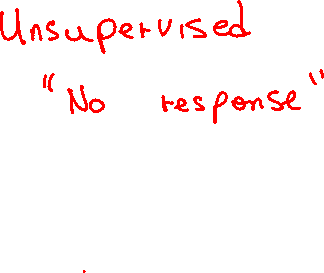 Unsupervised
"No response"